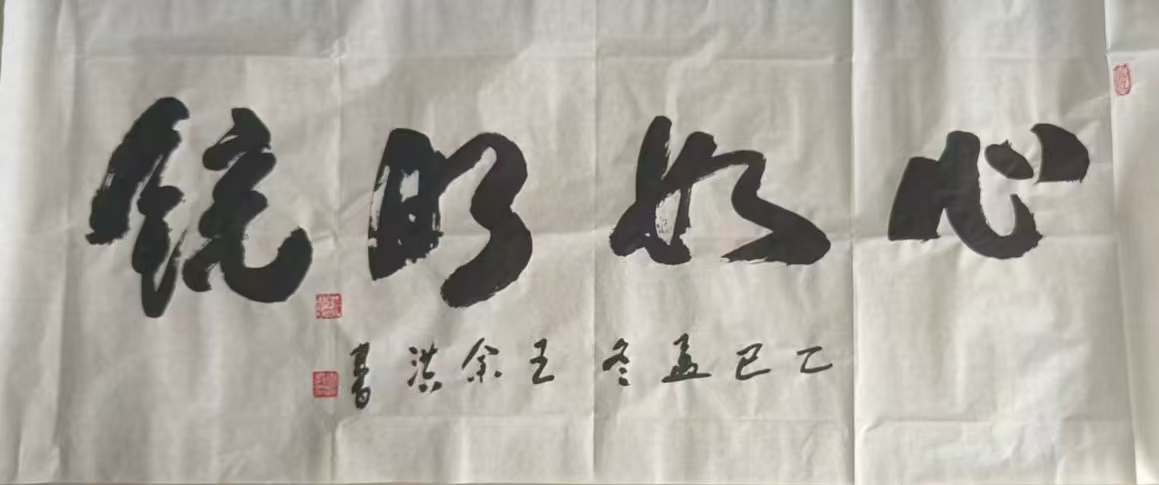 心如明镜
乙巳孟冬王余洪书